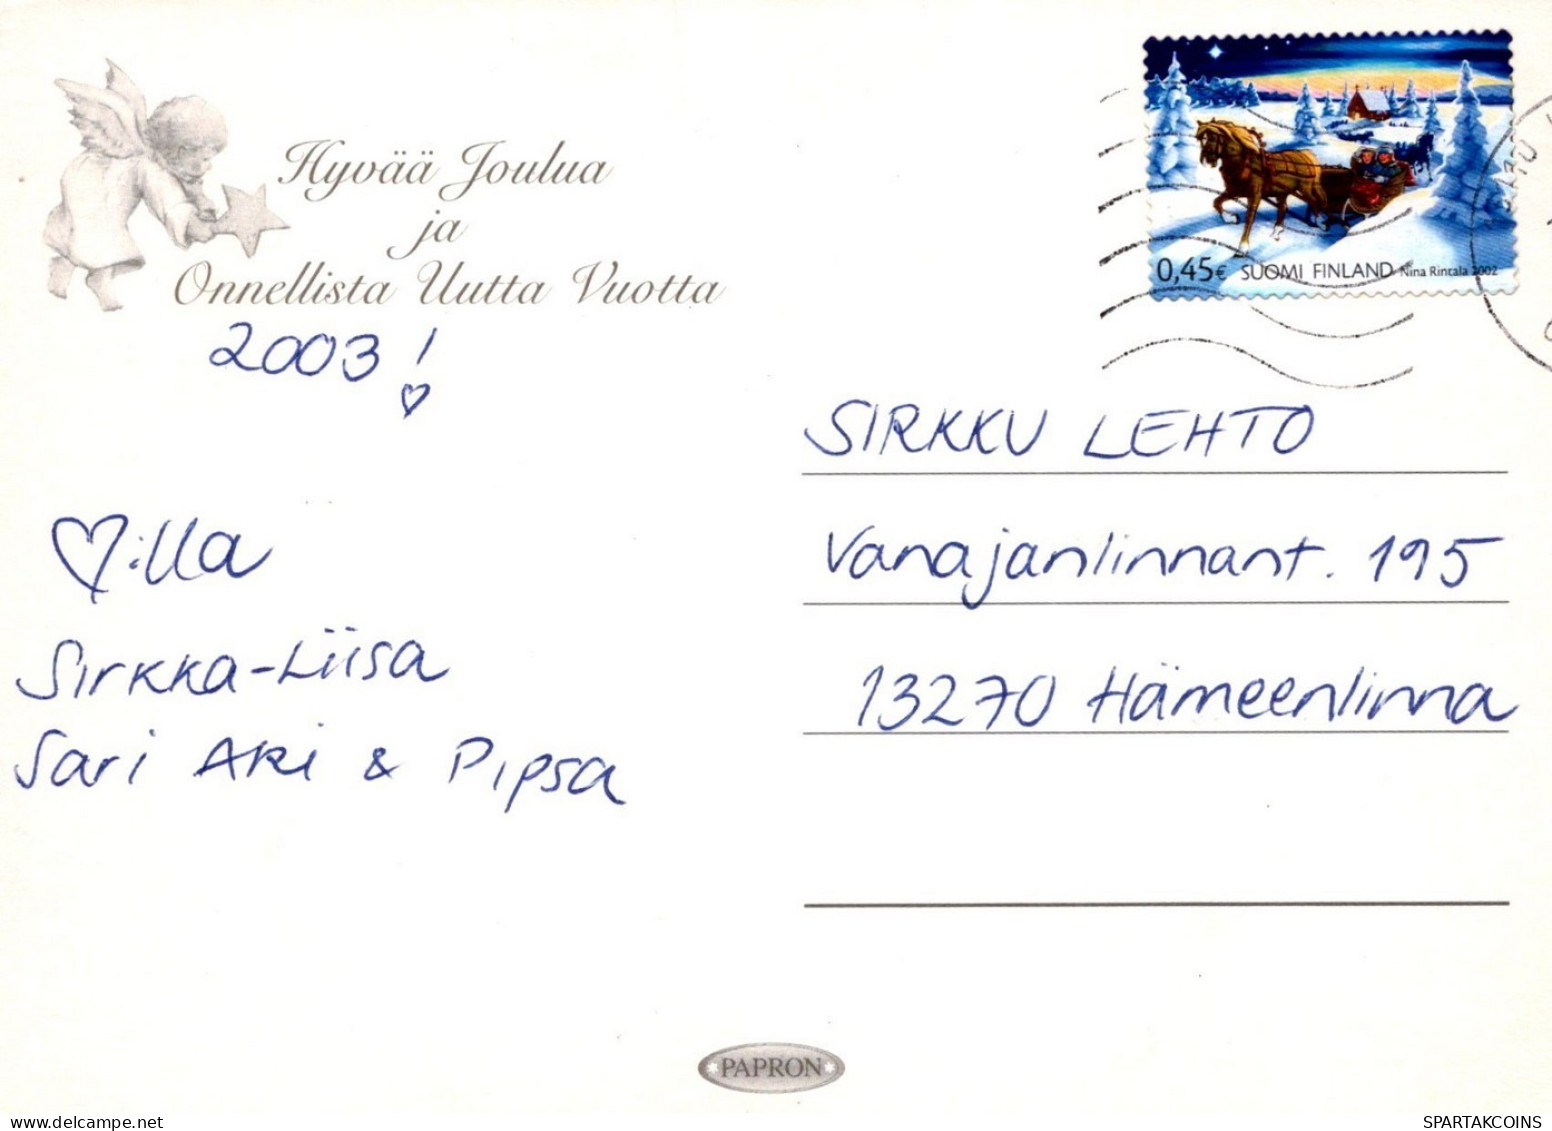 Hyvää Joulua
ja
Onnellista Uutta Vuotta
2003!
♡illa
Sirkka-Liisa
Sari Aki & Pipsa
0,45€ SUOMI FINLAND Nina Rintala 2002
SIRKKU LEHTO
Vanajanlinnant. 195
13270 Hämeenlinna
PAPRON
SPARTAKCOINS